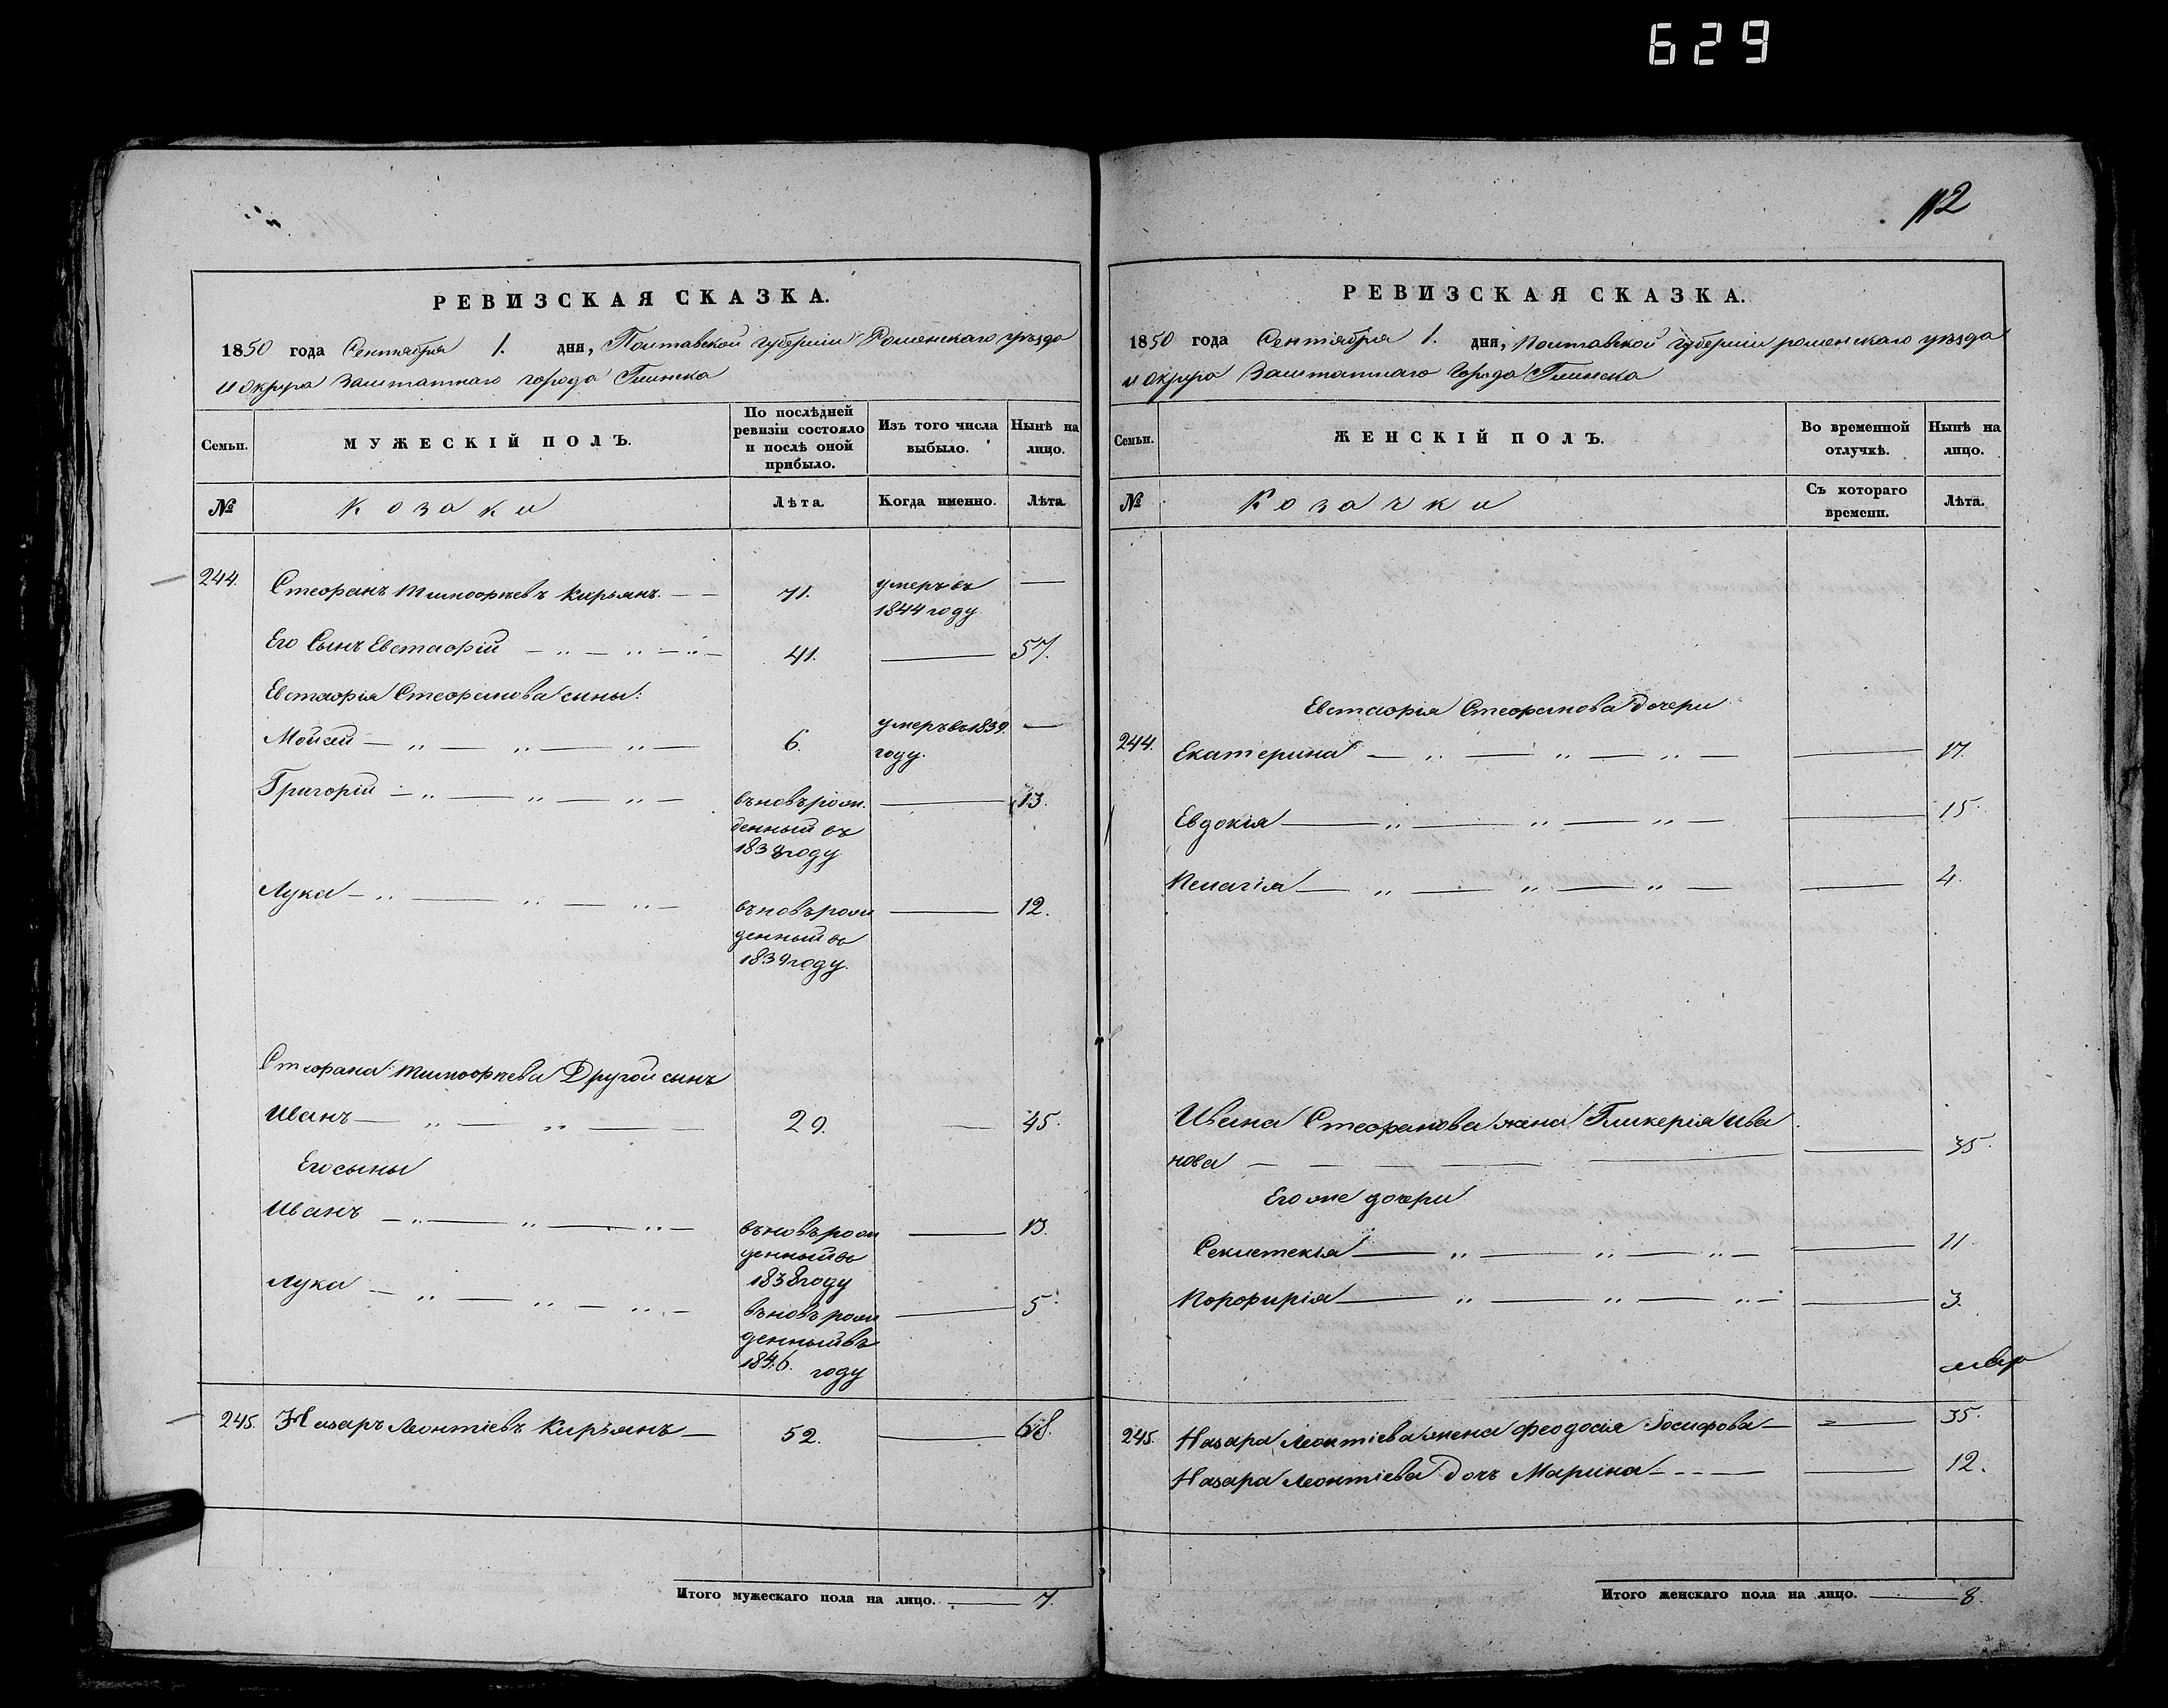 629
РЕВИЗСКАЯ СКАЗКА.
1850 года Сентября 1. дня, Полтавской губерніи Роменскаго уѣзда
и округа Заштатнаго города Глинска
Семьи.
МУЖЕСКІЙ ПОЛЪ.
По послѣдней ревизіи состояло и послѣ оной прибыло.
Изъ того числа выбыло.
Нынѣ на лицо.
№ Козаки Лѣта. Когда именно. Лѣта.
244. Стефанъ Тимофѣевъ Кирьянъ. — — 71. умеръ въ 1844 году —
Его Сынъ Евстафій — „ — „ — „ — 41. — 57.
Евстафія Стефанова сыны:
Мойсей — „ — „ — „ — 6. умеръ въ 1839. году. —
Григорій — „ — „ — „ — въновь рож. денный въ 1838 году — 13.
Лука — „ — „ — „ — въновь рож денный въ 1839 году. — 12.
Стефана Тимофѣева Другой сынъ
Иванъ — „ — „ — — 29. — 45.
Его сыны
Иванъ — „ — „ — „ — въновь рож денный въ 1838 году — 13.
Лука — „ — „ — „ — въновь рож денный въ 1846. году — 5.
245. Назаръ Леонтіевъ Кирьянъ — 52. — 68.
Итого мужескаго пола на лицо. — 7.
112
РЕВИЗСКАЯ СКАЗКА.
1850 года Сентября 1. дня, Полтавской губерніи роменскаго уѣзда
и округа Заштатнаго Города Глинска
Семьи.
ЖЕНСКІЙ ПОЛЪ.
Во временной отлучкѣ.
Нынѣ на лицо.
№ Козачки Съ котораго времени. Лѣта.
Евстафія Стефанова дочери
244. Екатерина — „ — „ — „ — — 17.
Евдокія — „ — „ — „ — — 15.
Пелагія — „ — „ — „ — — 4.
Ивана Стефанова жена Гликерія Ива
нова — — — — — — 35.
Его же дочери
Секлетекія — „ — „ — „ — — 11
Порфирія — „ — „ — „ — — 3.
245. Назара Леонтіева жена Феодосія Іосифова — — 35.
Назара Леонтіева дочь Марина — — — — 12.
Итого женскаго пола на лицо. — 8.